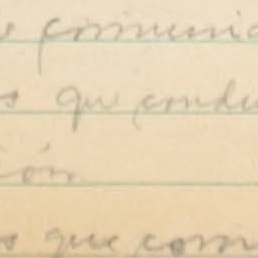 comunic
s que condu
ión
s que com